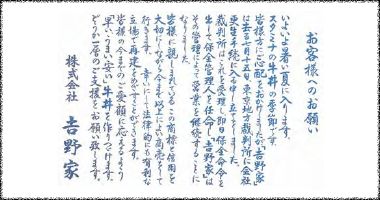 お客様へのお願い
いよいよ暑い夏に入ります。
スタミナの牛丼の季節です。
皆様方にご心配をおかけしましたが、吉野家は
に去る七月十五日、東京地方裁判所に会社
更生手続に入る申し立てをしました。
裁判所はこれを受理し、即日保全命令を
出して保全管理人を任命し、吉野家は
その管理によって営業を継続することに
なりました。
皆様に親しまれているこの商標と信用を
大切にしながら今まで以上によい商売をして
行きます。幸いにして法律的にも有利な
立場で再建をめざすことができます。
皆様の今までのご愛顧に応えるよう
「早い、うまい、安い」牛丼を作りつづけます。
どうか一層のご支援をお願い致します。
株式会社 吉野家